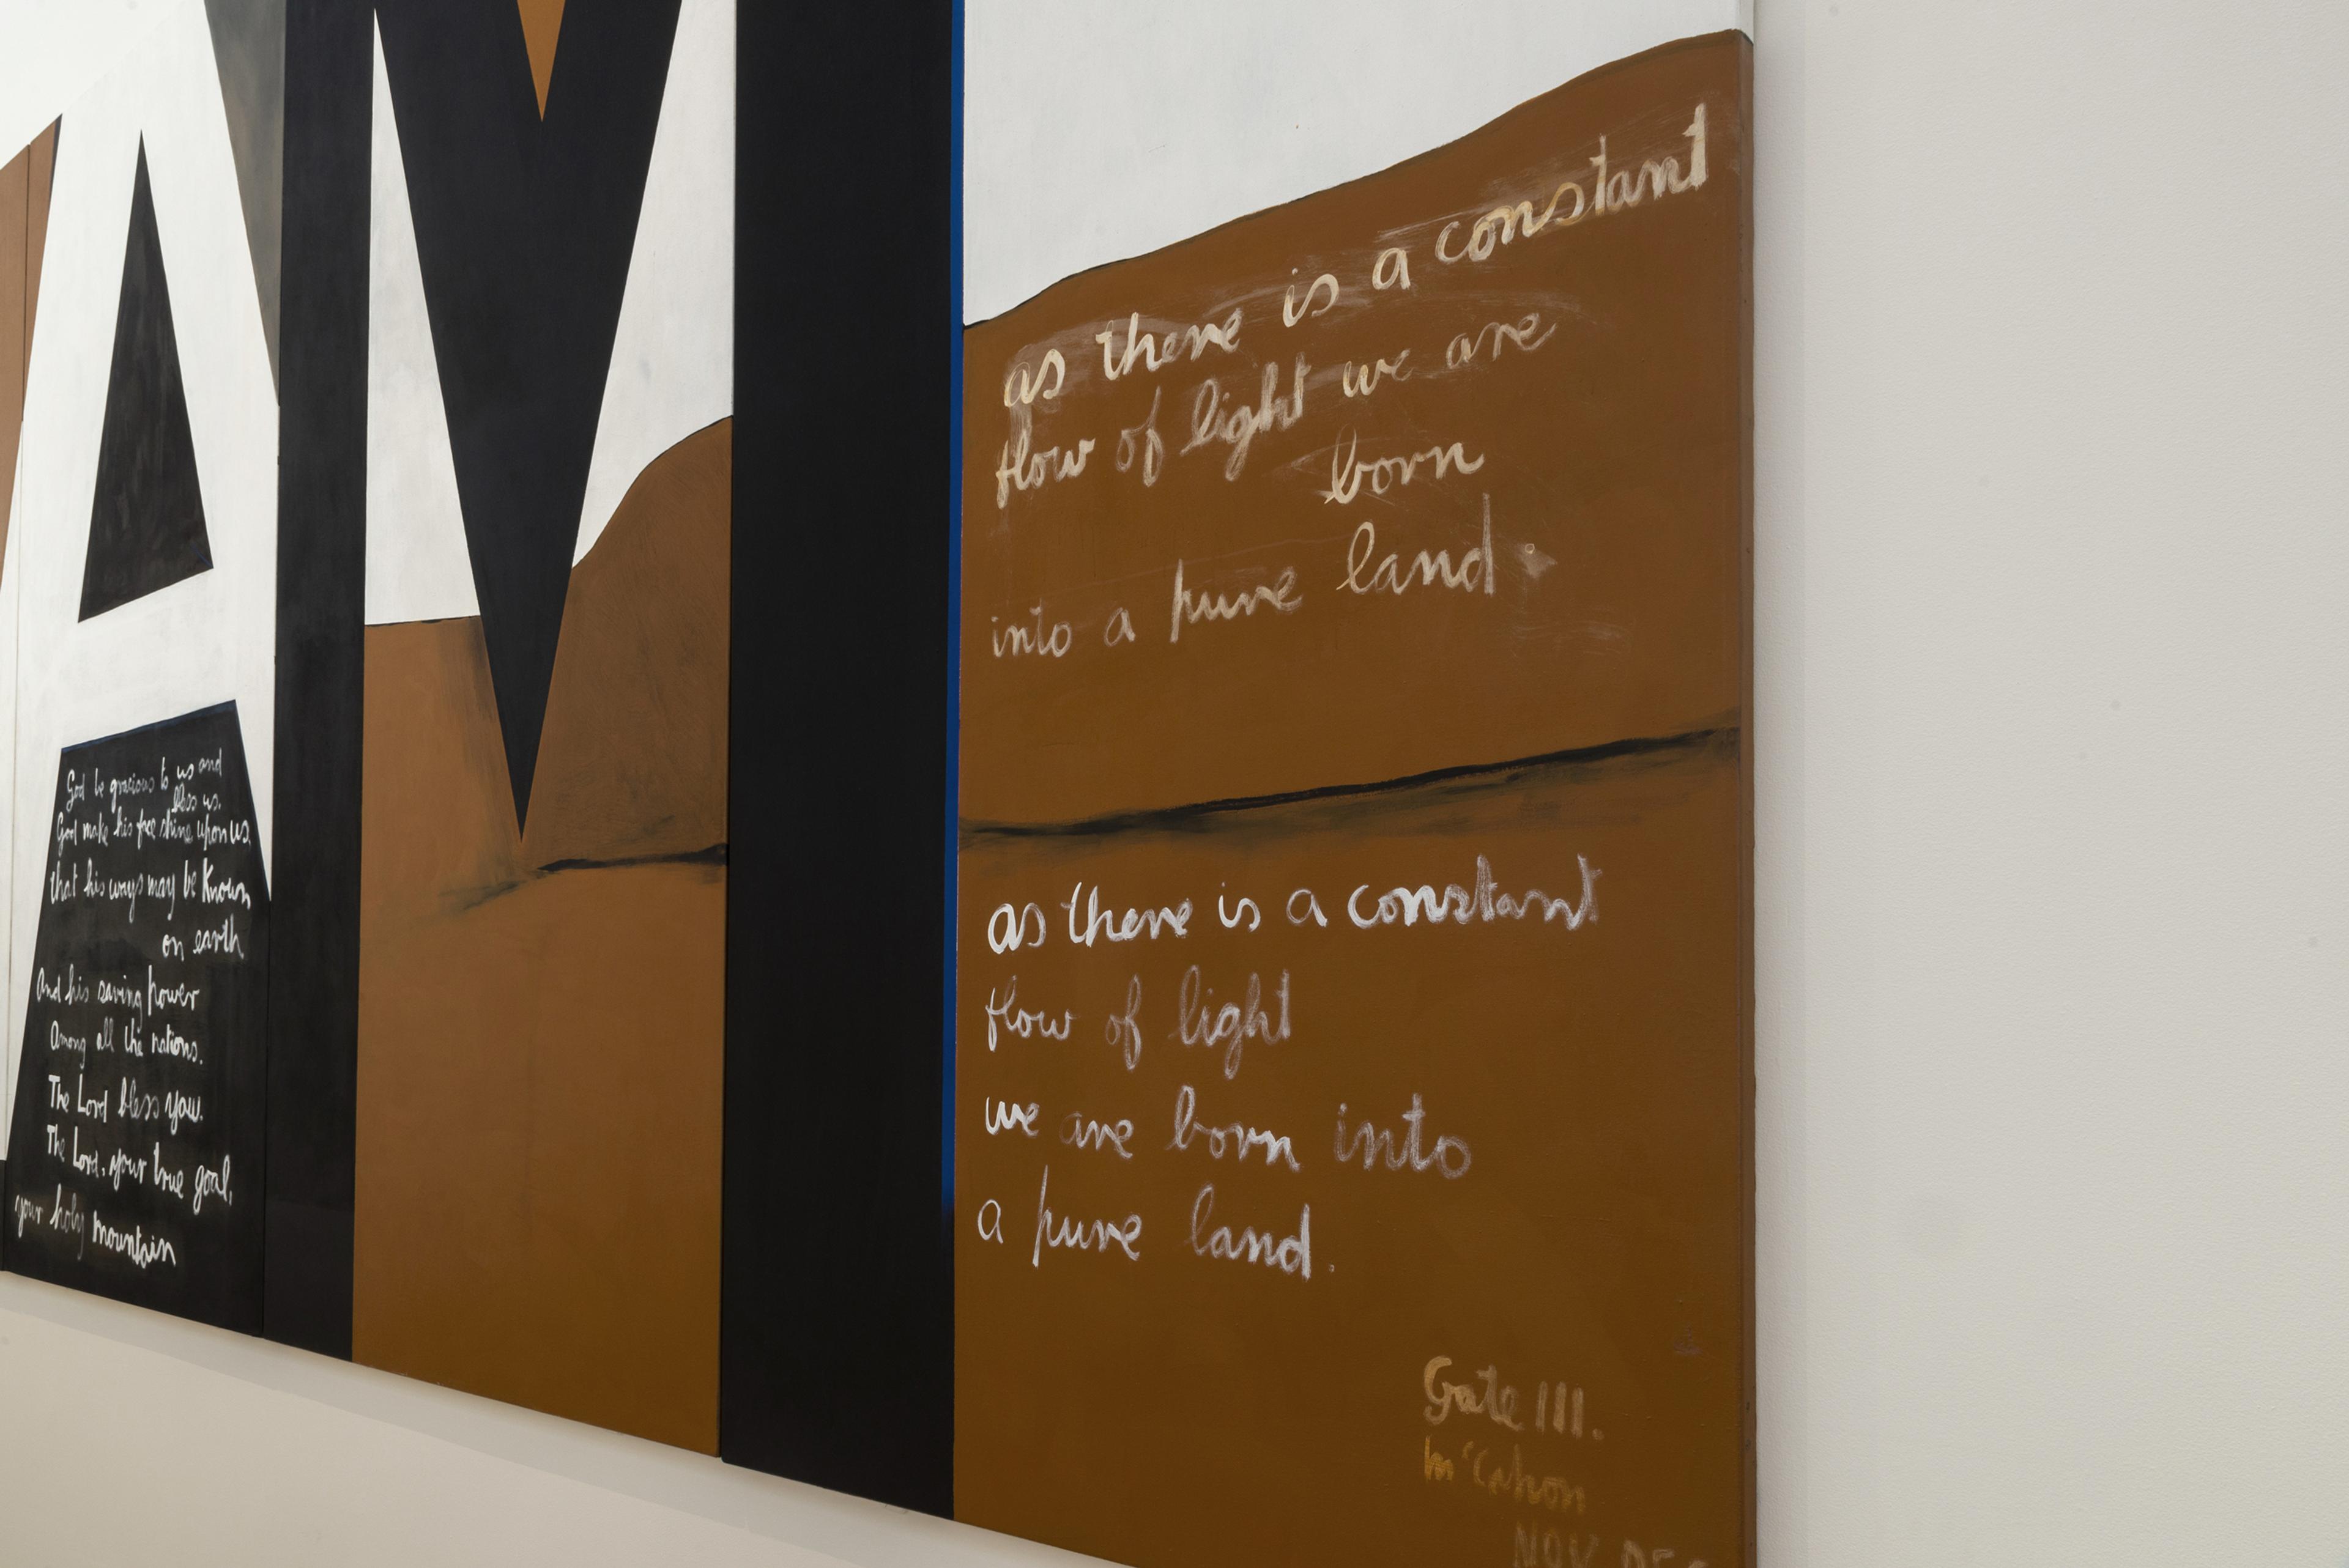 AM
God be gracious to us and
bless us.
God make his face shine upon us,
that his ways may be Known
on earth
And his saving power
Among all the nations.
The Lord bless you.
The Lord, your true goal,
your holy mountain
as there is a constant
flow of light we are
born
into a pure land.
as there is a constant
flow of light
we are born into
a pure land.
Gate III.
McCahon
NOV DEC